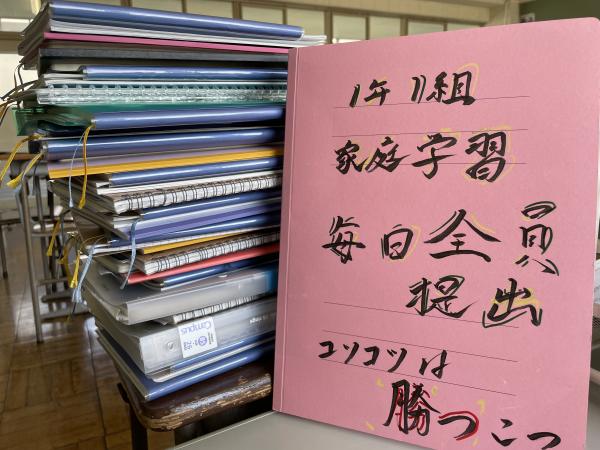 1年1組
家庭学習
毎日全員
提出
コツコツは
勝つこつ
Campus